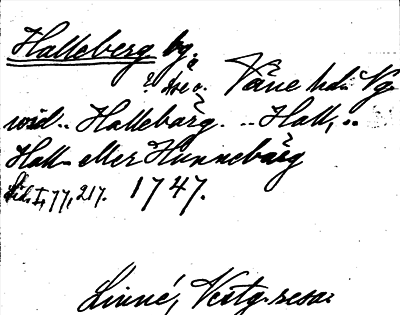 Halleberg bg.
Väne hd. Vg.
wid .. Hallebärg. .. Hall, ..
Hall- eller Hunnebärg
Lid. I, 77, 217. 1747.
Linné, Vestg. resa.